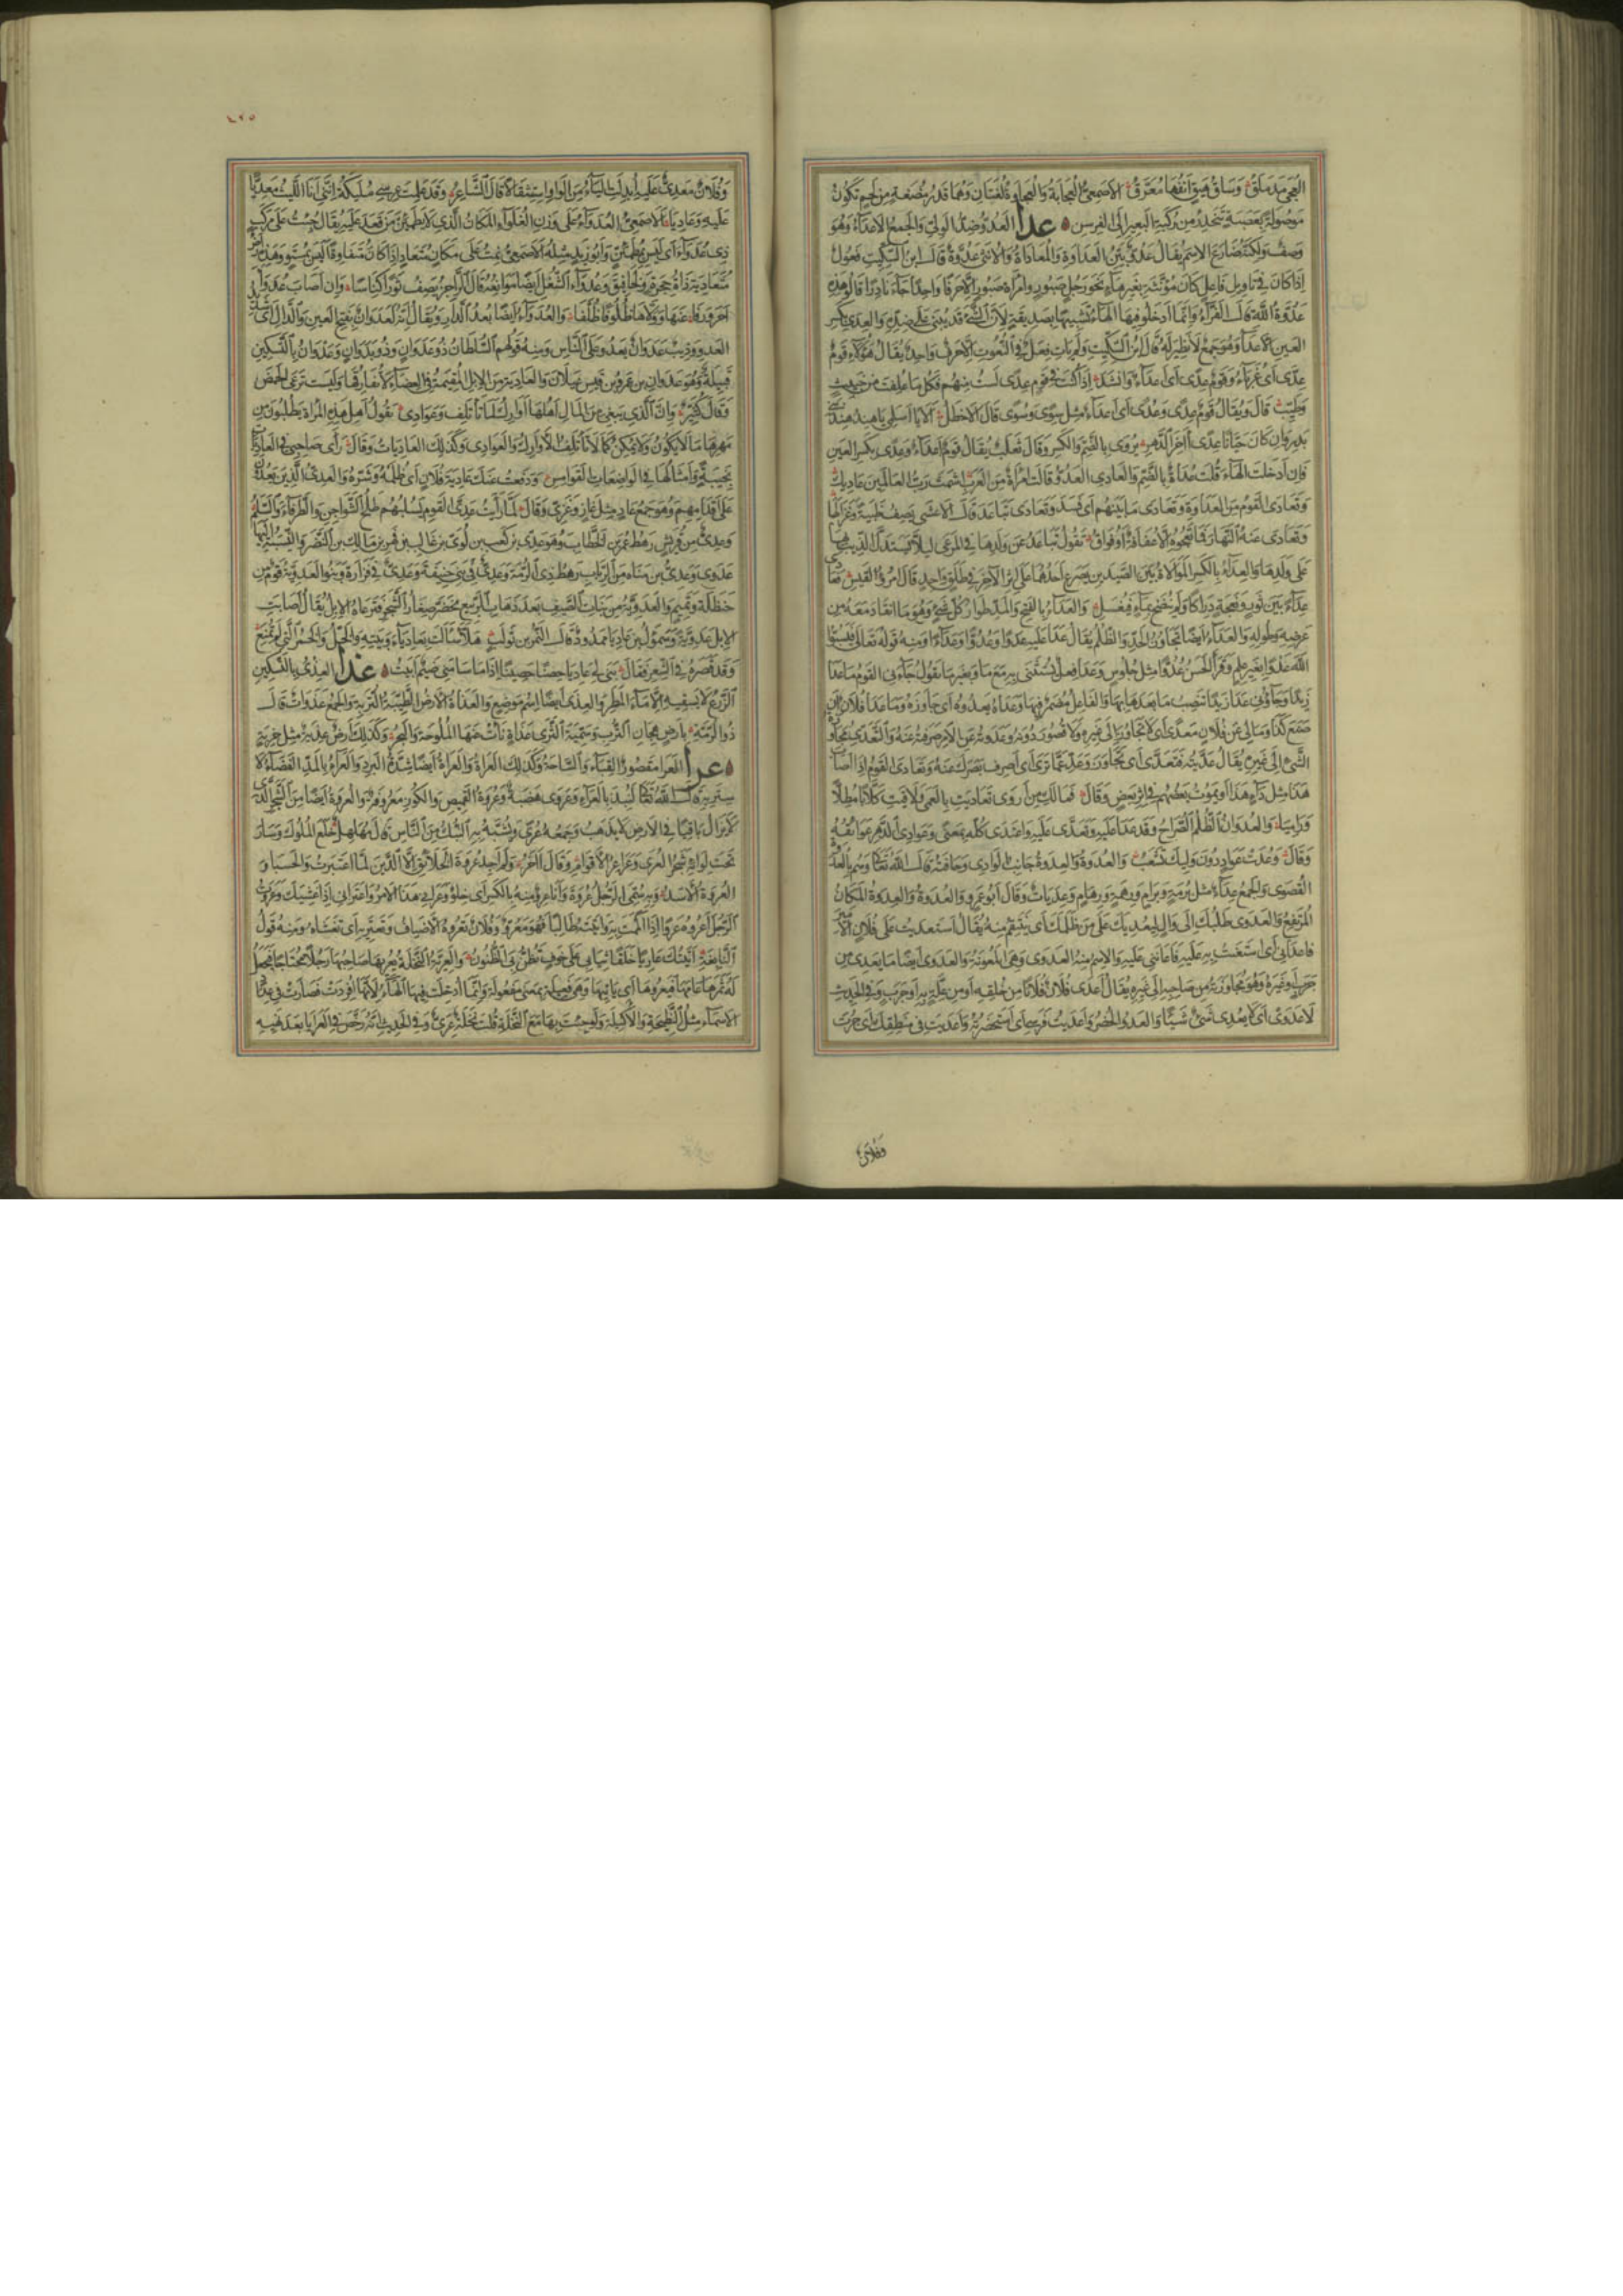 موصولة بعصبة تنحدر من ركبة البعير الى الفرسن عدا العدو ضد الولي والجمع الاعداء وهو
وصف ولكنه ضارع الاسم يقال عدو بين العداوة والمعاداة والانثى عدوة قال ابن السكيت فعول
اذا كان في تاويل فاعل كان مؤنثه بغير هاء نحو رجل صبور وامراة صبور الا حرفا واحدا جاء نادرا قالوا هذه
عدوة الله قال الفراء وانما ادخلوا فيها الهاء تشبيها بصديقة لان الشئ قد يبنى على ضده والعدى بكسر
العين الاعداء وهو جمع لا نظير له قال ابن السكيت ولم يات فعل في النعوت الا حرف واحد يقال هؤلاء قوم
عدى اى غرباء وقوم عدى اى اعداء وانشد اذا كنت في قوم عدى لست منهم فكل ما علفت من خبيث
وطيب قال ويقال قوم عدى وعدى اى اعداء مثل سوى وسوى قال الاخطل الا يا اسلمى يا هند هند بنى
بدر وان كان حيانا عدى اخر الدهر يروى بالضم والكسر وقال ثعلب يقال قوم اعداء وعدى بكسر العين
فان ادخلت الهاء قلت عداة بالضم والعادى العدو قالت امراة من العرب اشمت رب العالمين عاديك
وتعادى القوم من العداوة وتعادى ما بينهم اى فسد وتعادى تباعد قال الاعشى يصف ظبية وغزالها
وتعادى عنه النهار فما تعجوه الا عفافة او فواق تقول تباعد عن ولدها في المرعى ليلا يستدل الذيب بها
على ولدها والعداء بالكسر الموالاة بين الصيدين يصرع احدهما على اثر الاخر في طلق واحد قال امرؤ القيس فعادى
عداء بين ثور ونعجة دراكا ولم ينضح بماء فيغسل والعداء بالفتح والمد طوار كل شئ وهو ما انقاد معه من
عرضه وطوله والعداء ايضا تجاوز الحد والظلم يقال عدا عليه عدوا وعدوا وعداء ومنه قوله تعالى فيسبوا
الله عدوا بغير علم وقرأ الحسن عدوا مثل جلوس وعدا فعل يستثنى به مع ما وبغير ما تقول جاءنى القوم ما عدا
زيدا وجاؤنى عدا زيدا تنصب ما بعدها بها والفاعل مضمر فيها وعداه يعدوه اى جاوزه وما عدا فلان ان
صنع كذا ومالى عن فلان معدى اى لا تجاوز لى الى غيره ولا قصور دونه وعدوته عن الامر صرفته عنه والتعدى مجاوزة
الشئ الى غيره يقال عديته فتعدى اى تجاوز وعد عما ترى اى اصرف بصرك عنه وتعادى القوم اذا اصاب
هذا مثل داء هذا او يموت بعضهم في اثر بعض وقال فمالك من اروى تعاديت بالعمى ولاقيت كلابا مطلا
وراميا والعدوان الظلم الصراح وقد عدا عليه وتعدى عليه واعتدى كله بمعنى وعوادى الدهر عوائقه
وقال وعدت عواد دون وليك تشعب والعدوة والعدوة جانب الوادى وحافته قال الله تعالى وهم بالعدوة
القصوى والجمع عداء مثل برمة وبرام ورهمة ورهام وعديات وقال ابو عمرو العدوة والعدوة المكان
المرتفع والعدوى طلبك الى وال ليعديك على من ظلمك اى ينتقم منه يقال استعديت على فلان الامير
فاعدانى اى استغنت به عليه فاعاننى عليه والاسم منه العدوى وهى المعونة والعدوى ايضا ما يعدى من
جرب وغيره وهو مجاوزته من صاحبه الى غيره يقال اعدى فلان فلانا من خلقه او من علة به او جرب وفي الحديث
لا عدوى اى لا يعدى شئ شيئا والعدو الحضر واعديت فرسى اى استحضرته واعديت في منطقك اى جرت
وفلان
٤٢٥
وفلان معدى عليه ابدلت الياء من الواو استثقالا قال الشاعر وقد علمت عرسى مليكة اننى انا الليث معديا
عليه وعاديا الاصمعى العدواء على وزن الغلواء المكان الذى لا يطمئن من قعد عليه يقال جئت على مركب
ذى عدواء اى ليس بمطمئن وابو زيد مثله الاصمعى نمت على مكان متعاد اذا كان متفاوتا ليس بمستو وهذه ارض
متعادية ذات جحرة ولخافيق وعدواء الشغل ايضا موانعه قال الراجز يصف ثورا كناسا وان اصاب عدواء
احرورفا عنها وولاها ظلوفا ظلفا والعدواء ايضا بعد الدار ويقال انه لعدوان بفتح العين والدال اى شديد
العدو وذئب عدوان يعدو على الناس ومنه قولهم السلطان ذو عدوان وذو بدوان وعدوان بالتسكين
قبيلة وهو عدوان بن عمرو بن قيس عيلان والعادية من الابل المقيمة في العضاه لا تفارقها وليست ترعى الحمض
وقال كثير وان الذى يبغى من المال اهلها اوارك لما تاتلف وعوادى يقول اهل هذه المراة يطلبون من
مهرها ما لا يكون ولا يمكن كما لا تاتلف الاوارك والعوادى وكذلك العاديات وقال راى صاحبى في العاديات
نجيبة وامثالها في الواضعات القوامس ودفعت عنك عادية فلان اى ظلمه وشره والعدى الذين يعدون
على اقدامهم وهو جمع عاد مثل غاز وغزى وقال لما رايت عدى القوم يسلبهم طلح الشواجن والطرفاء والسلم
وعدى من قريش رهط عمر بن الخطاب وهو عدى بن كعب بن لوى بن غالب بن فهر بن مالك بن النضر والنسبة اليها
عدوى وعدى بن مناه من الرباب رهط ذى الرمة وعدى في بنى حنيفة وعدى في فزارة وبنو العدوية قوم من
حنظلة وتميم والعدوية من نبات الصيف بعد ذهاب الربيع يخضر صغار الشجر فترعاه الابل يقال اصابت
الابل عدوية وسموال بن عاديا ممدود قال النمر بن تولب هلا سالت بعادياء وبيته والخل والخمر التى لم تمنع
وقد قصره في الشعر فقال بنى لى عاديا حصنا حصينا اذا ما سامنى ضيم ابيت غذا العذى بالتسكين
الزرع لا يسقيه الا ماء المطر والعذى ايضا اسم موضع والعذاة الارض الطيبة التربة والجمع عذوات قال
ذو الرمة بارض هجان الترب وسمية الثرى عذاة نات عنها الملوحة والبحر وكذلك ارض عذية مثل خربة
عرا العرا مقصور الفناء والساحة وكذلك العراة والعراة ايضا شدة البرد والعراء بالمد الفضاء لا
ستر به قال الله تعالى لنبذ بالعراء وعروى هضبة وعروة القميص والكوز معروفة والعروة ايضا من الشجر الذى
لا يزال باقيا في الارض لا يذهب وجمعه عرى ويشبه به النبك من الناس قال مهلهل خلع الملوك وسار
تحت لوائه شجر العرى وعراعر الاقوام وقال اخر ولم اجد عروة الخلائق الا الدين لما اعتبرت والحسبا و
العروة الاسد وبه سمى الرجل عروة وانا عرو منه بالكسر اى خلو وعرانى هذا الامر واعترانى اذا غشيك وعروت
الرجل اعروه عروا اذا الممت به واتيته طالبا فهو معرو وفلان تعروه الاضياف وتعتريه اى تغشاه ومنه قول
النابغة اتيتك عاريا خلقا ثيابى على خوف تظن بى الظنون والعرية النخلة يعريها صاحبها رجلا محتاجا فيجعل
له ثمرها عامها فيعروها اى ياتيها وهى فعيلة بمعنى مفعولة وانما ادخلت فيها الهاء لانها افردت فصارت في عداد
الاسماء مثل النطيحة والاكيلة ولو جئت بها مع النخلة قلت نخلة عرى وفي الحديث انه رخص في العرايا بعد نهيه